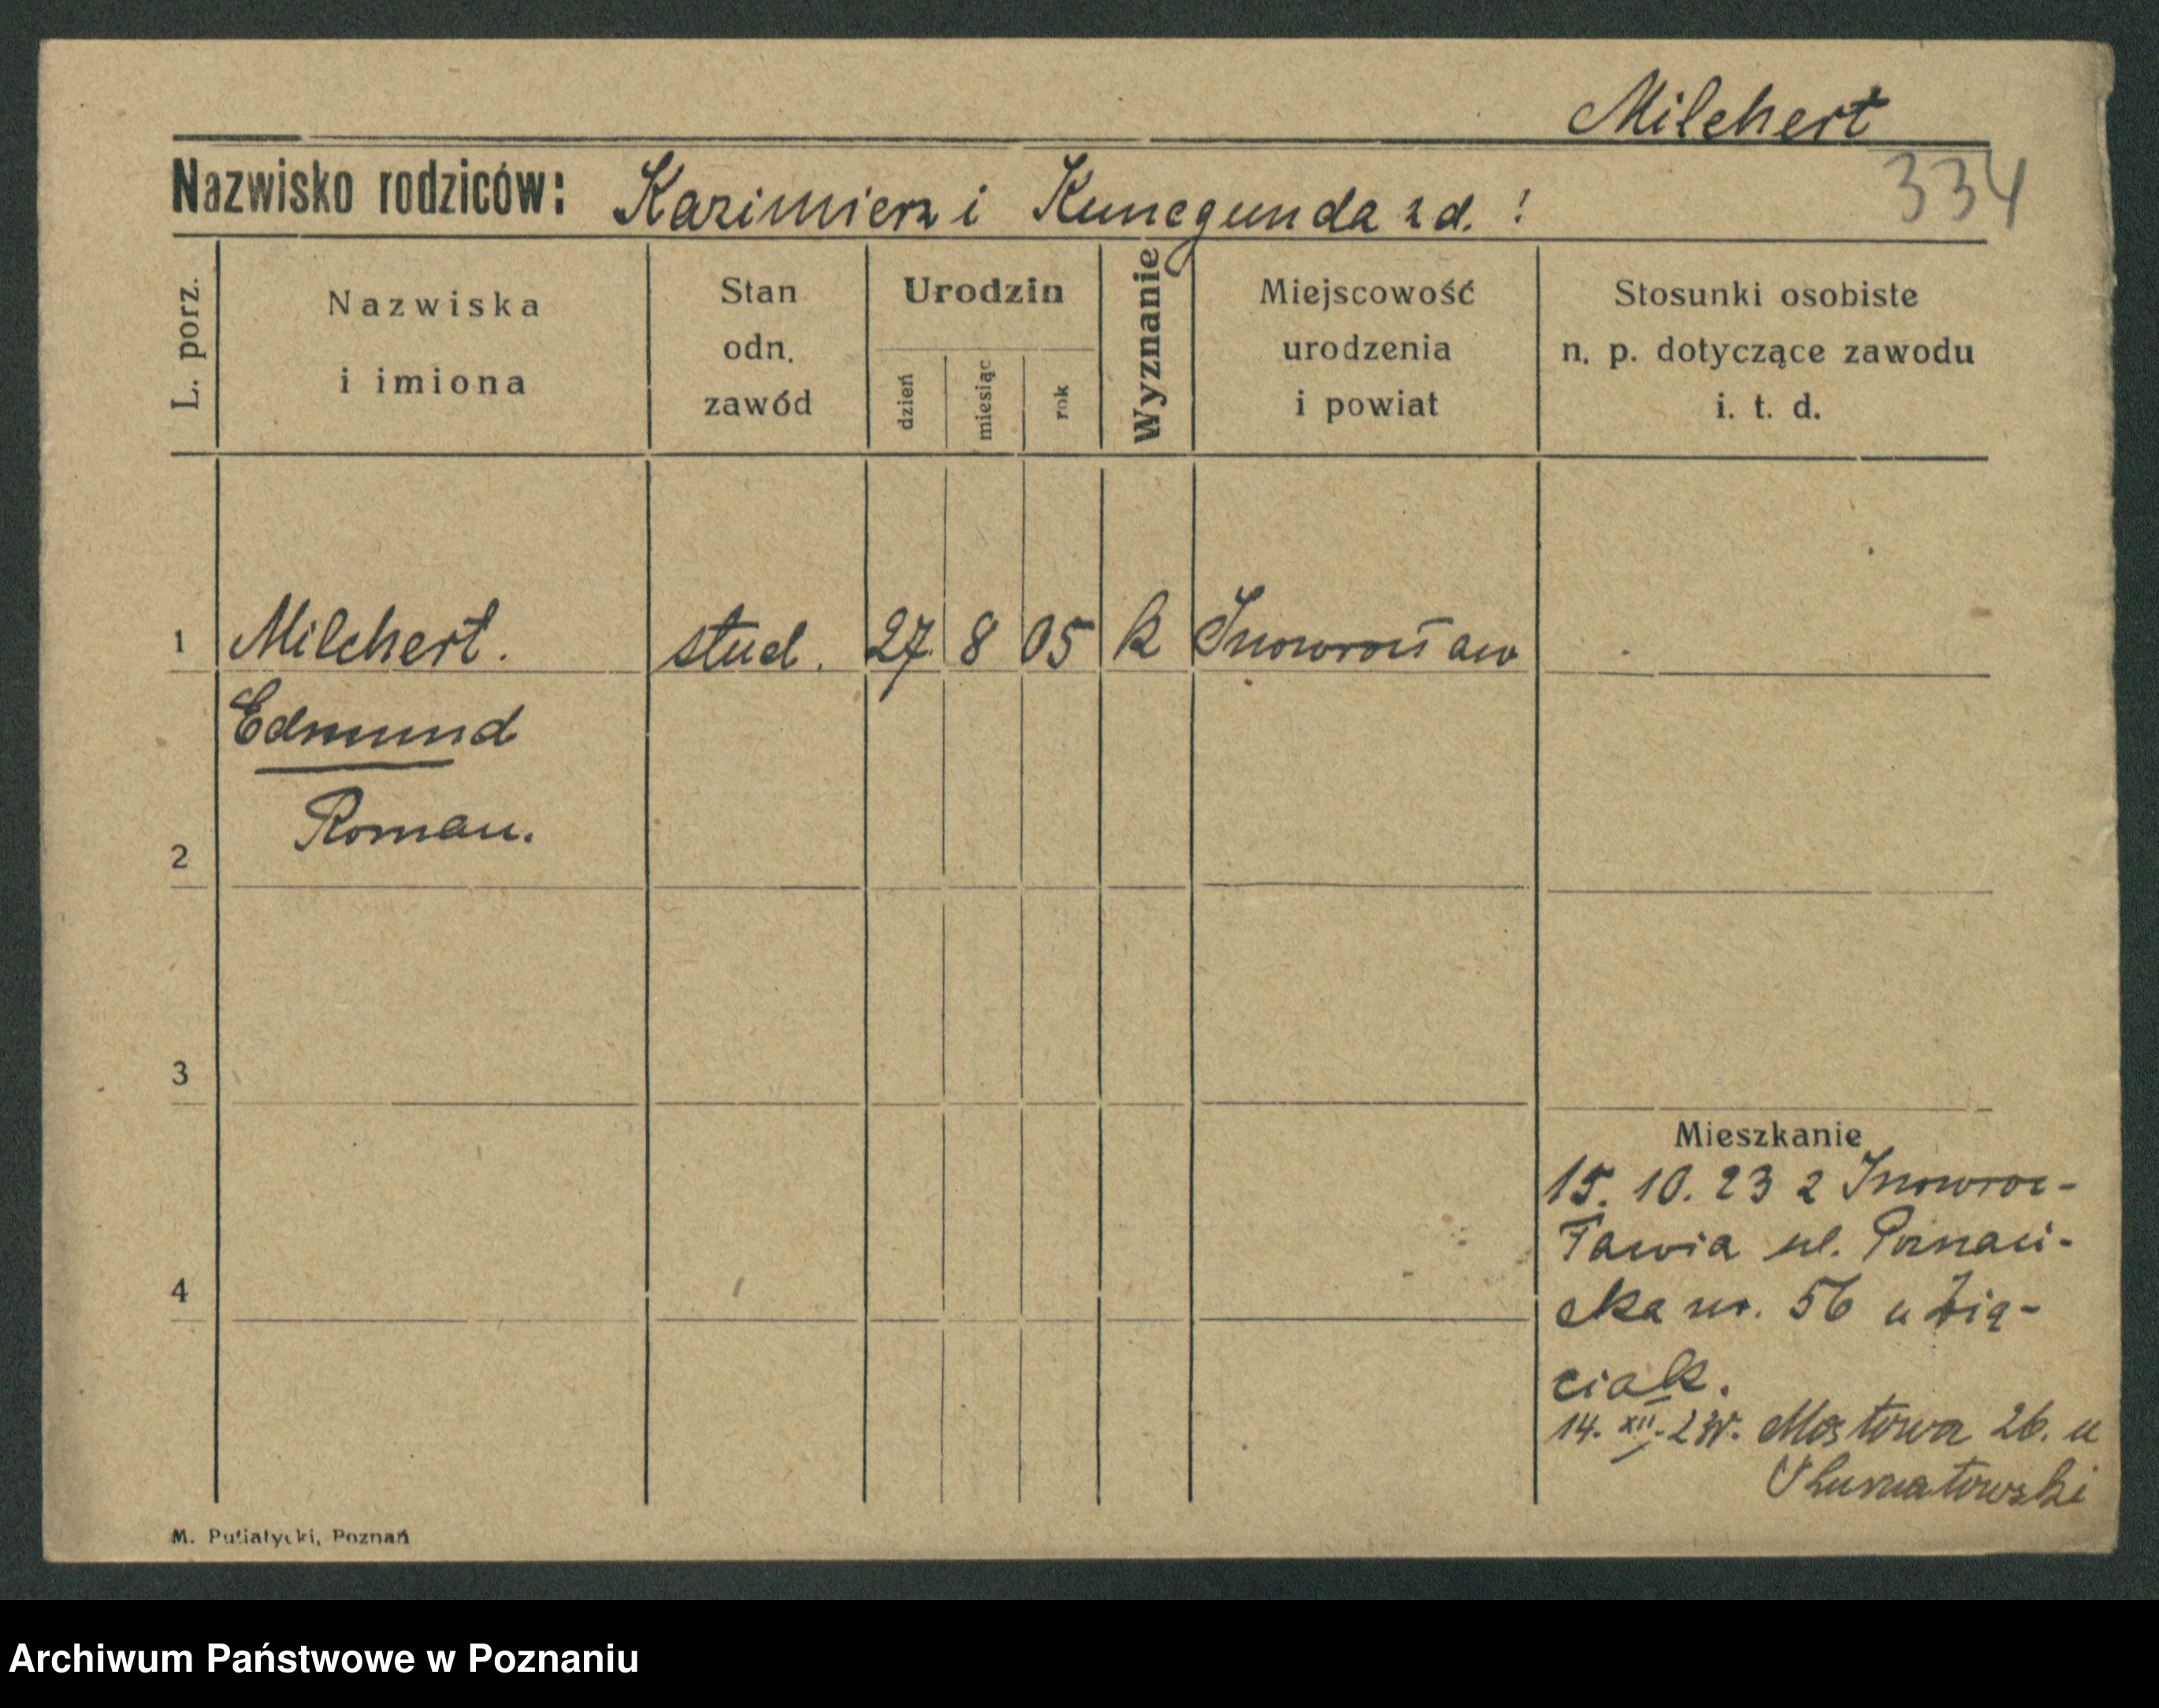 Milchert
334
Nazwisko rodziców: Kazimierz i Kunegunda zd. !
L. porz.
Nazwiska
i imiona
Stan
odn.
zawód
Urodzin
dzień
miesiąc
rok
Wyznanie
Miejscowość
urodzenia
i powiat
Stosunki osobiste
n. p. dotyczące zawodu
i. t. d.
1 Milchert. stud. 27. 8 05 k Inowrocław
Edmund
Roman.
2
3
4
Mieszkanie
15. 10. 23 z Inowroc-
ławia ul. Poznań-
ska nr. 56 u
14. XII. Mostowa 26. u
M. Putiatycki, Poznań
Archiwum Państwowe w Poznaniu